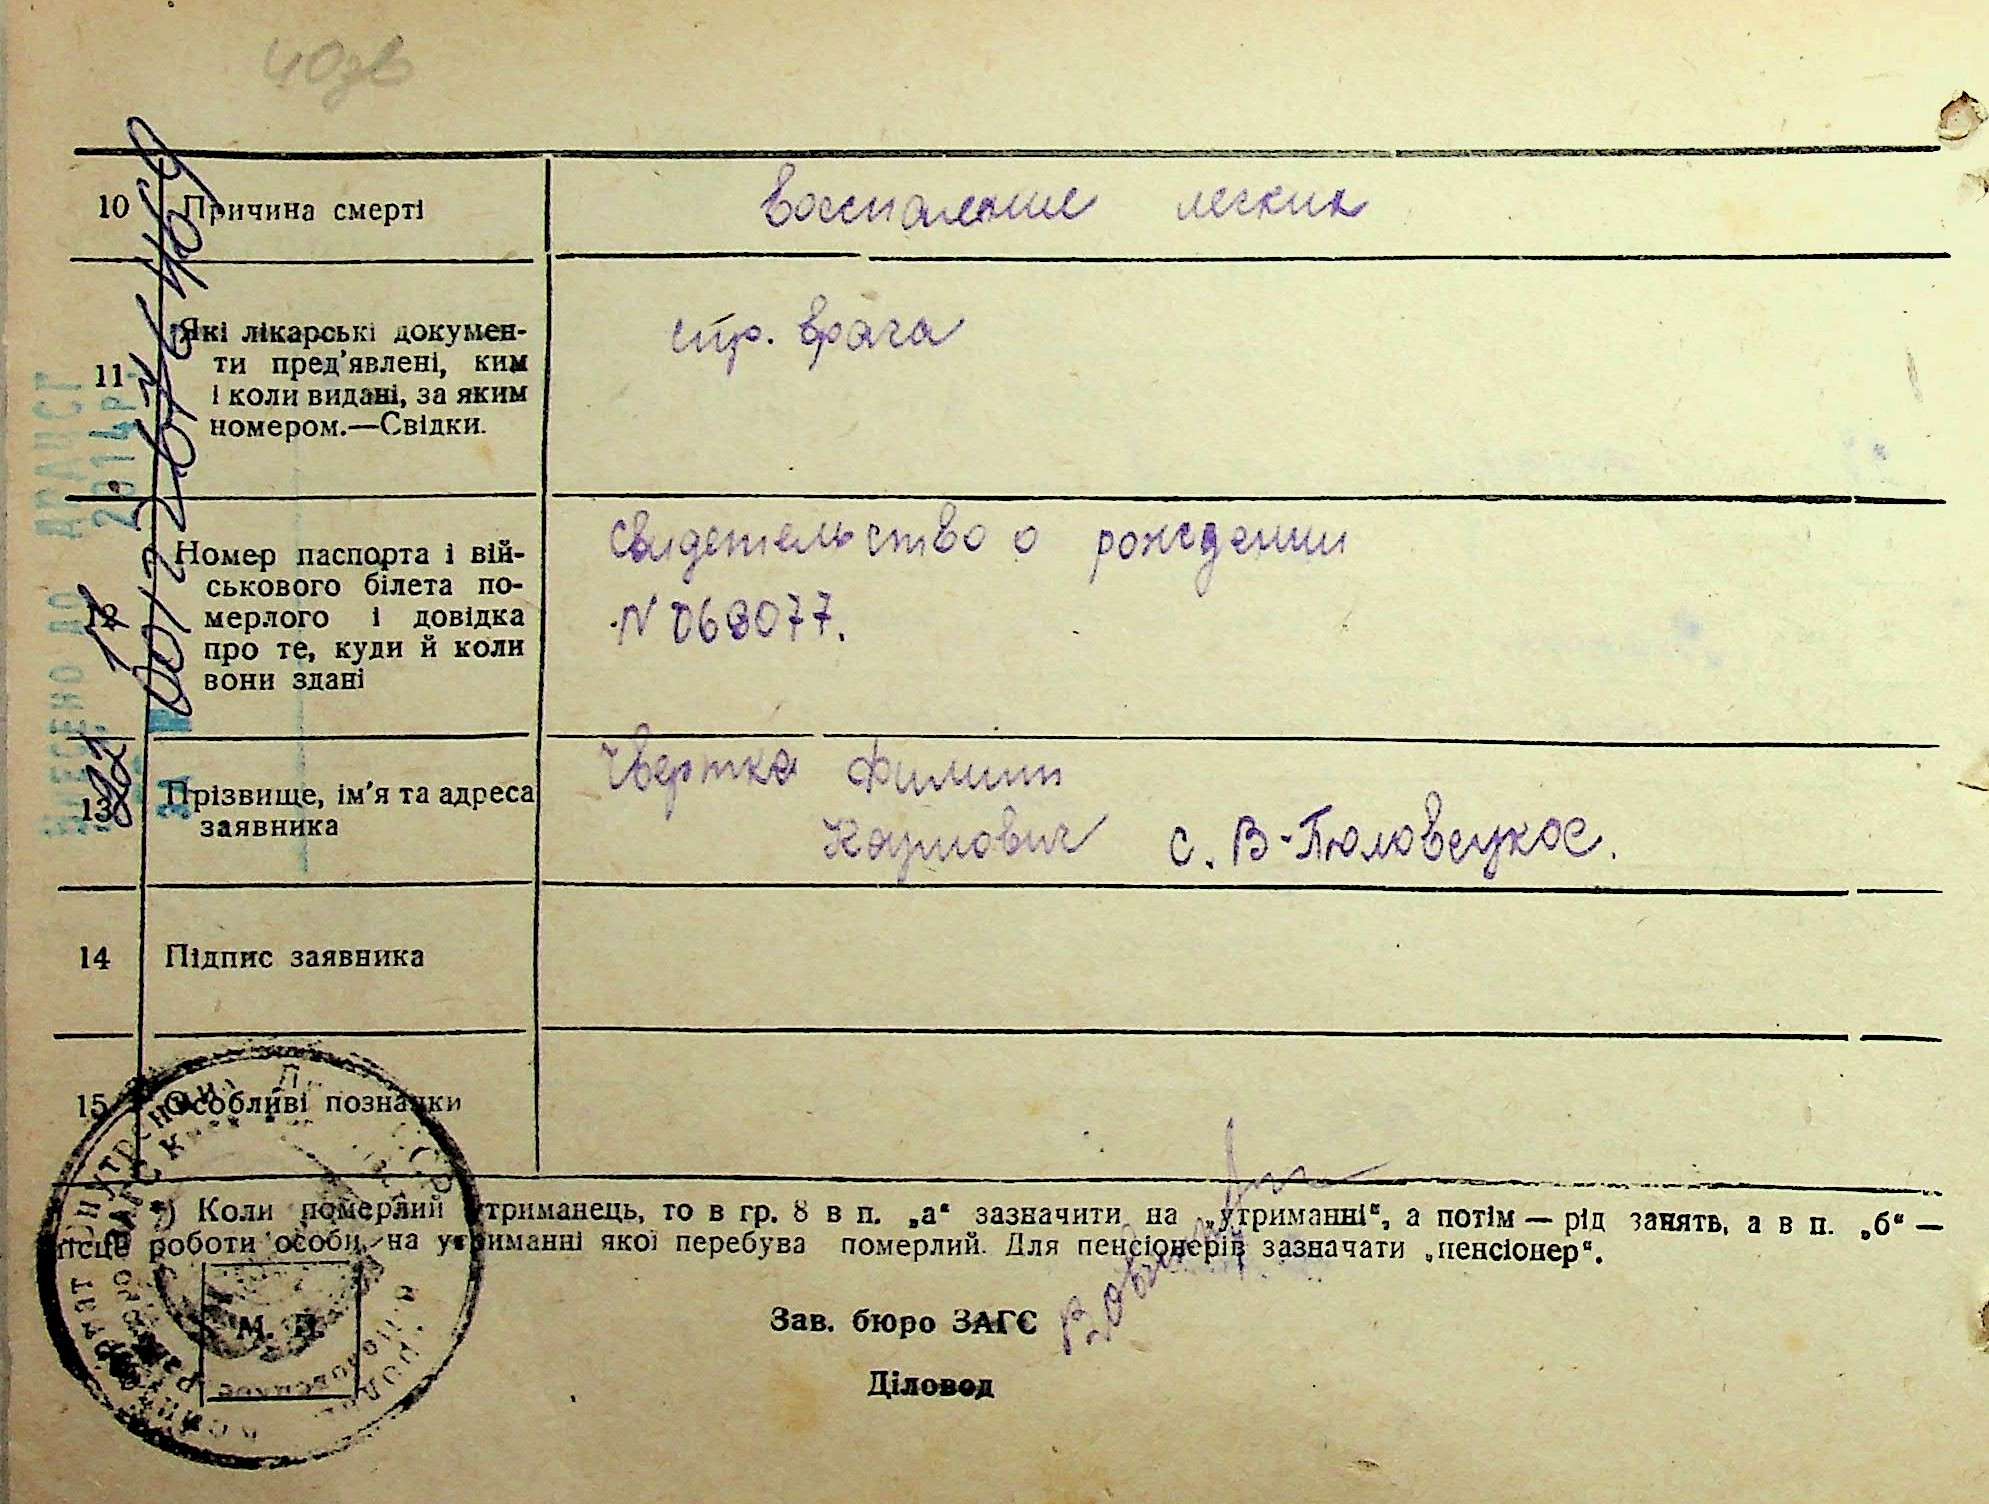 40зв
10 Причина смерті
воспаление легких
11 Які лікарські докумен-
ти пред'явлені, ким
і коли видані, за яким
номером.—Свідки.
стр. врача
12 Номер паспорта і вій-
ськового білета по-
мерлого і довідка
про те, куди й коли
вони здані
свидетельство о рождении
N 063077.
13 Прізвище, ім'я та адреса
заявника
Чвертка Филипп
Карпович с. В-Половецкое.
14 Підпис заявника
15 Особливі позначки
*) Коли померлий утриманець, то в гр. 8 в п. „а“ зазначити на „утриманні“, а потім — рід занять, а в п. „б“ —
місце роботи особи, на утриманні якої перебува померлий. Для пенсіонерів зазначати „пенсіонер“.
М. П.
Зав. бюро ЗАГС
Діловод
ВНЕСЕНО ДО ДРАЦСГ
2014р.
17
за №